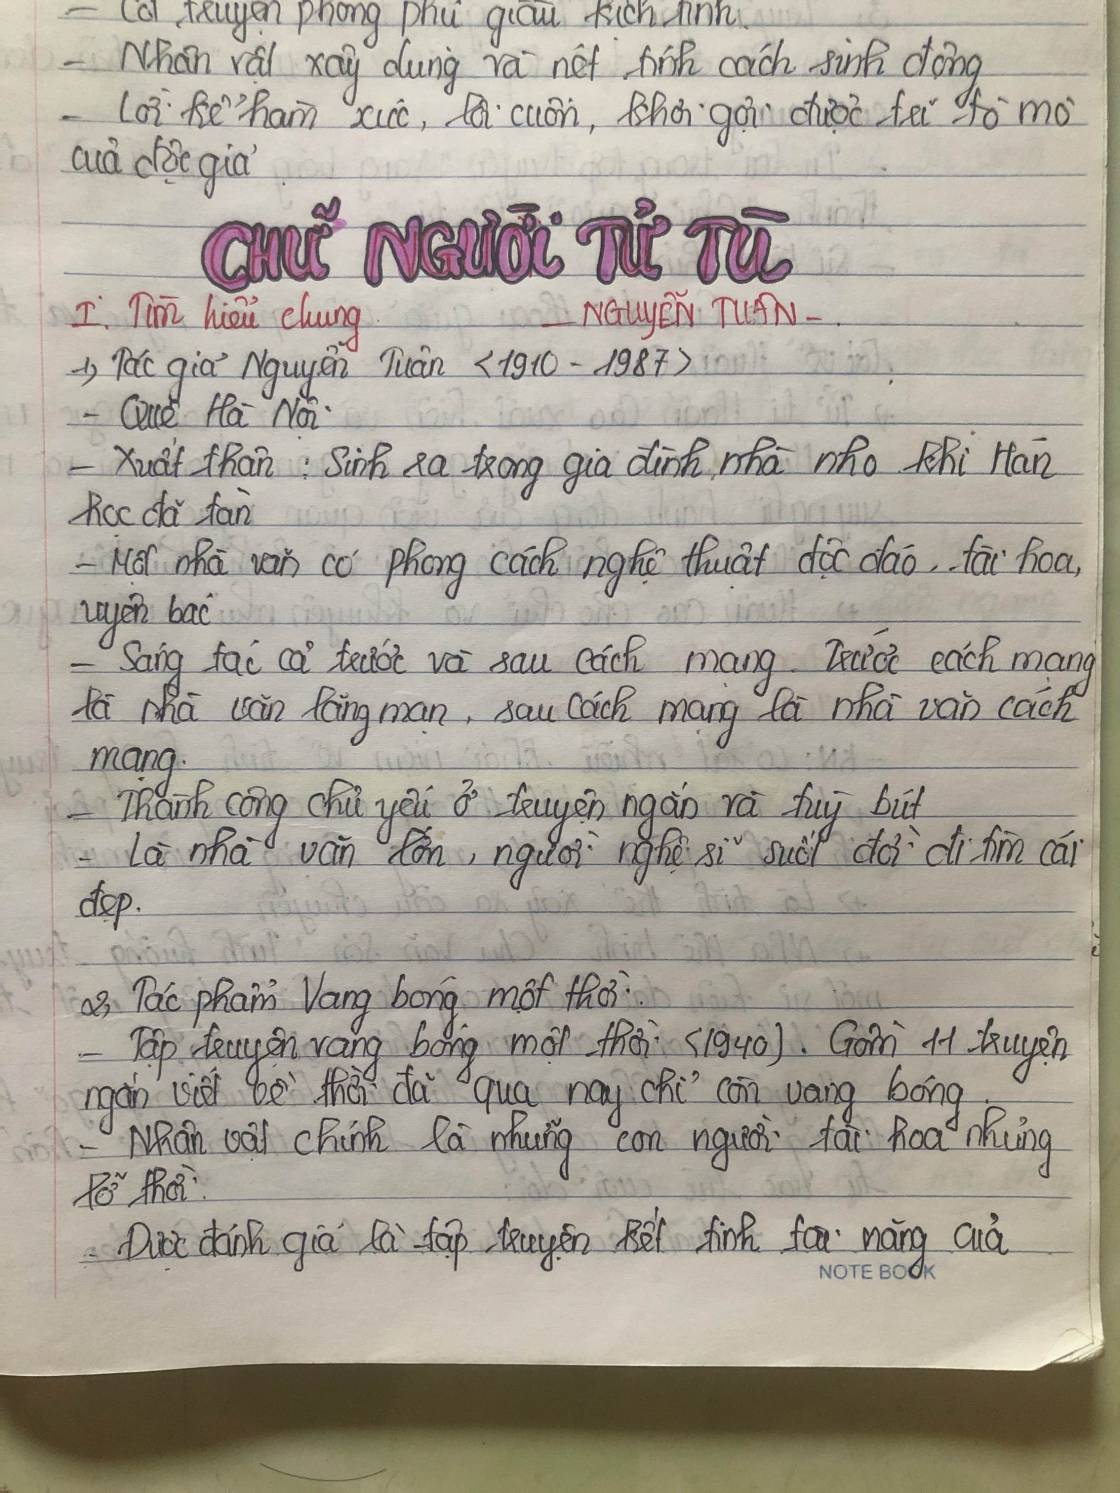 - Cốt truyện phong phú giàu kịch tính.
- Nhân vật xây dựng rõ nét tính cách sinh động
- Lời kể hàm xúc, lôi cuốn, khơi gợi được trí tò mò
của độc giả.
CHỮ NGƯỜI TỬ TÙ
I. Tìm hiểu chung
- NGUYỄN TUÂN -
1, Tác giả Nguyễn Tuân <1910 - 1987>
- Quê Hà Nội.
- Xuất thân : Sinh ra trong gia đình nhà nho khi Hán
học đã tàn
- Một nhà văn có phong cách nghệ thuật độc đáo, tài hoa,
uyên bác
- Sáng tác cả trước và sau cách mạng. Trước cách mạng
là nhà văn lãng mạn, sau cách mạng là nhà văn cách
mạng.
- Thành công chủ yếu ở truyện ngắn và tuỳ bút
- Là nhà văn lớn, người nghệ sĩ suốt đời đi tìm cái
đẹp.
2, Tác phẩm Vang bóng một thời.
- Tập truyện vang bóng một thời <1940>. Gồm 11 truyện
ngắn viết về thời đã qua nay chỉ còn vang bóng.
- Nhân vật chính là những con người tài hoa nhưng
lỡ thời.
- Được đánh giá là tập truyện kết tinh tài năng của
NOTE BOOK